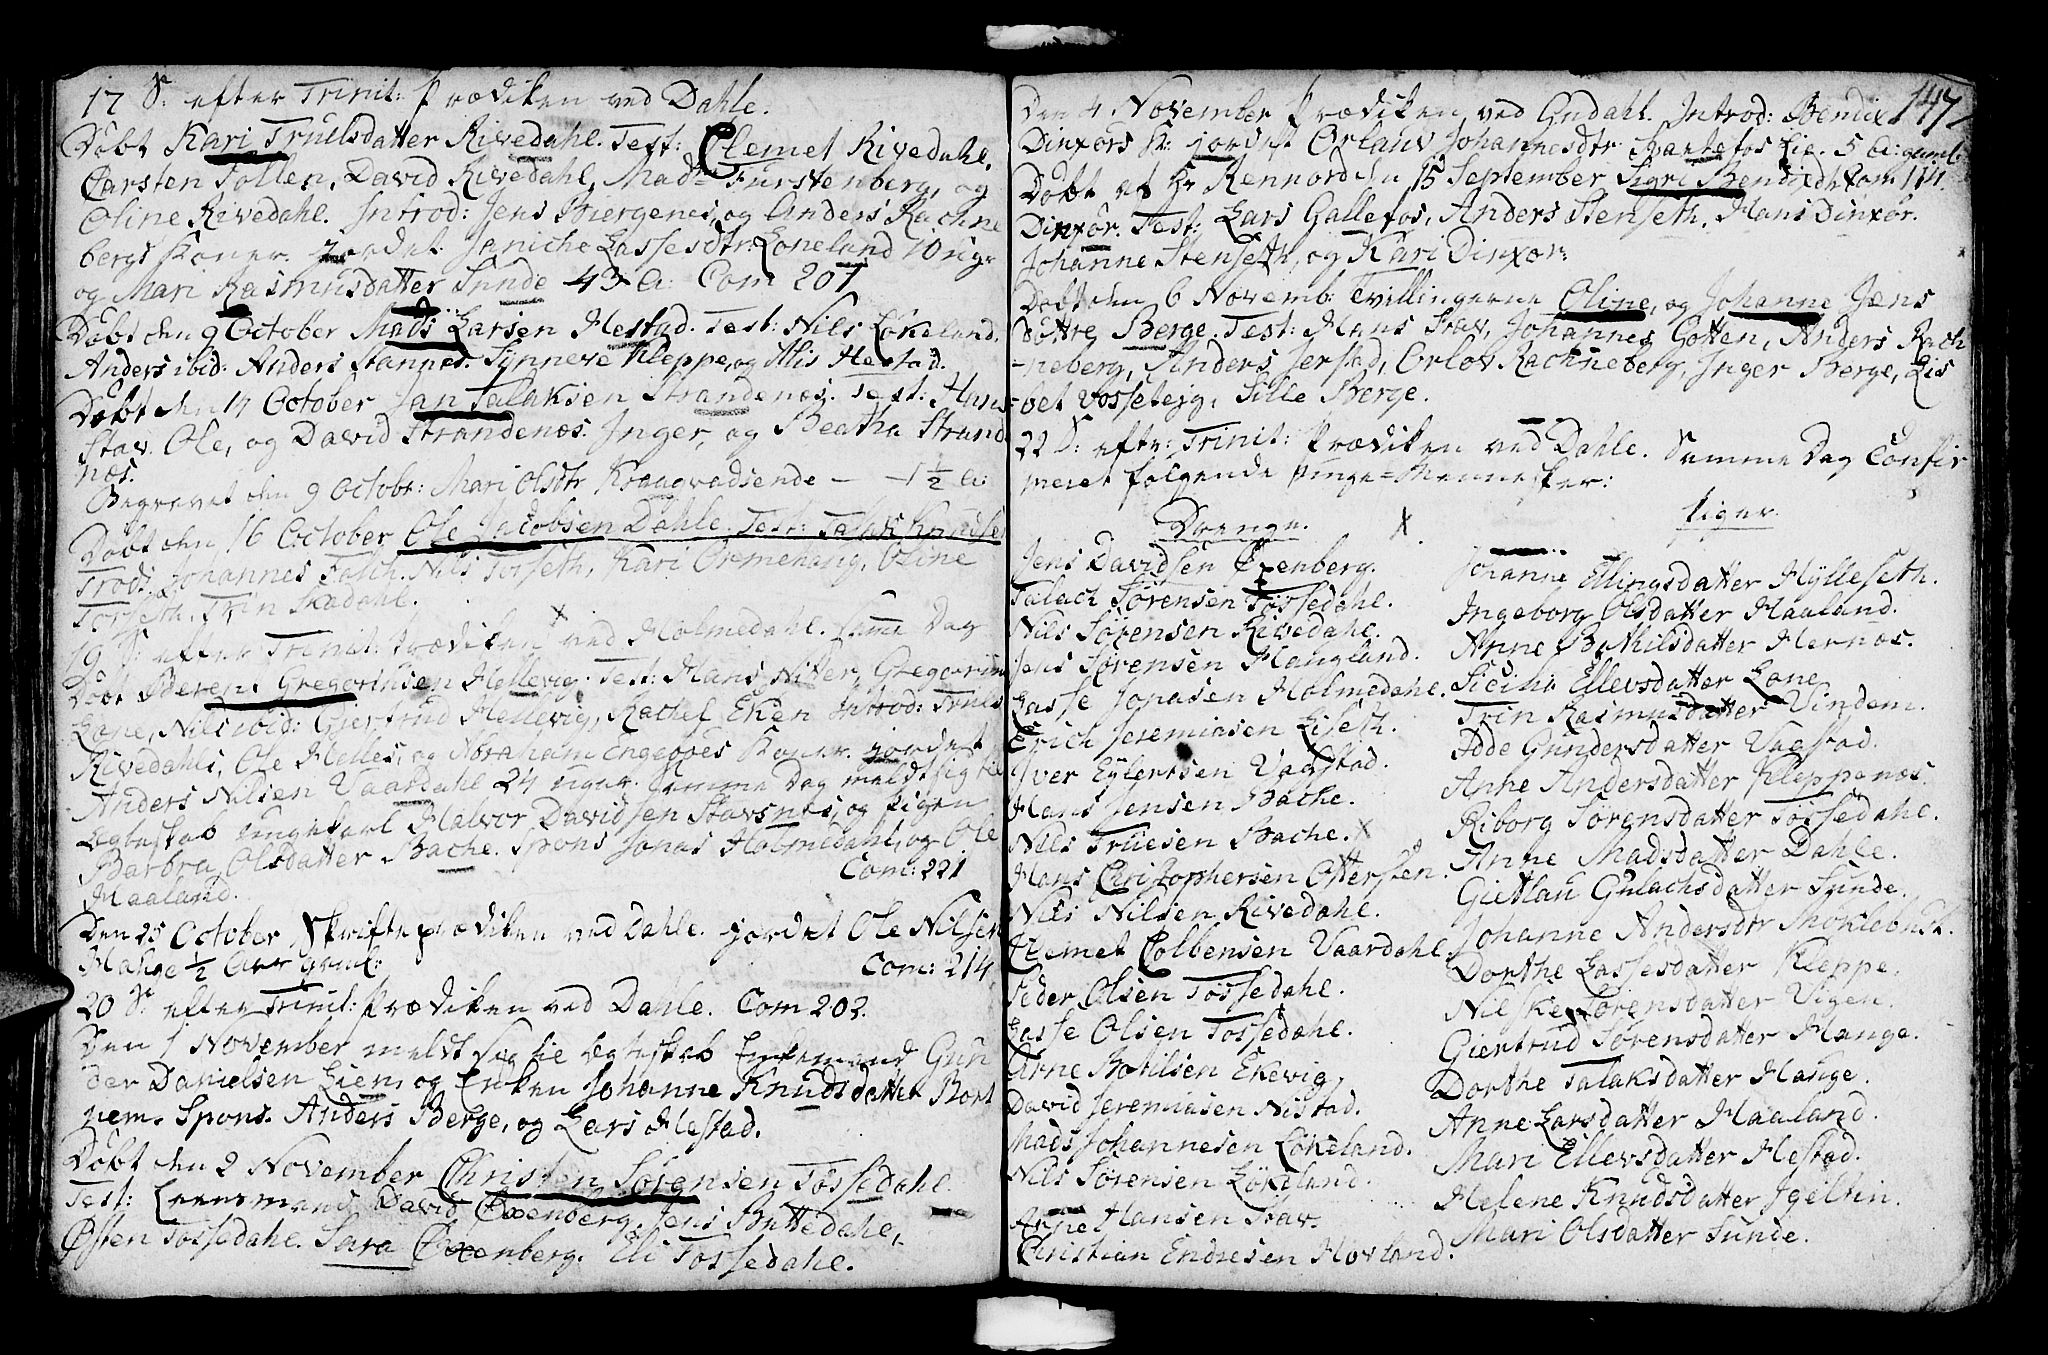 17 S: efter Trinit: Prædiken ved Dahle.
Døbt Kari Truelsdatter Rivedahl. Test: Clemet Rivedahl,
Carsten Tollen, David Rivedahl, Mad: Fürstenberg, og
Oline Rivedahl. Introd: Jens Biergenes, og Anders Rachne
bergs Koner. jordet Jeniche Lassesdtr: Loneland 10 ug:
og Mari Rasmusdatter Sunde 43 A: Com 207
Døbt den 9 October Mads Larsen Hestad. Test: Nils Løkeland,
Anders ibid: Anders Stannes. Synneve Kleppe, og Alis Hestad.
Døbt den 14 October Jan Salaksen Strandenæs. Test: Hans
Stav. Ole, og David Strandenæs. Inger, og Beatha Strand
næs.
Begravet den 9 Octobr: Mari Olsdtr Kraagvadsende — 1 1/2 A:
Døbt den 16 October Ole Jacobsen Dahle. Test: Knudsen
Trod: Johannes Falch. Nils Torseth, Kari Ormehaug, Oline
Torseth, Trin Skadahl.
19 S: efter Trinit: Prædiken ved Holmedahl. Samme Dag
Døbt Berent Gregoriusen Hellevig. Test: Hans Nitter, Gregorius
Lone, Nils ibid: Giertrud Hellevig, Rachel Eken Introd: Truels
Rivedahls, Ole Helles, og Abraham Engebøes Koner. jordet
Anders Nilsen Vaardahl 24 uger. Samme Dag meldt sig til
Egteskab ungekarl Halvor Davidsen Stavsnes, og Pigen
Barbra Olsdatter Bache. Spons Jonas Holmedahl, og Ole
Maaland. Com: 221
Den 25 October Skrifteprædiken ved Dahle. jordet Ole Nilsen
Hauge 1/2 Aar gml: Com: 214
20 S: efter Trinit: Prædiken ved Dahle. Com 202.
Den 1 November meldt sig til Egteskab Enkemand Gun
der Danielsen Lien, og Enken Johanne Knudsdatter Bort
nem. Spons. Anders Berge, og Lars Hestad.
Døbt den 2 November Christen Sørensen Tossedahl.
Test: Leensmand David Exenberg, Jens Buttedahle,
Østen Tossedahl. Sara Exenberg. Eli Tossedahl.
147
Den 4 November Prædiken ved Endahl. Introd: Bendix
Dinxørs K: jordet Orlauv Johannesdtr Svartefos Lie. 5 A: geml:
Døbt af Hr Rennord den 15 September Sigri Com. 174.
Dinxør. Test: Lars Gallefos, Anders Stenseth. Hans Dinxør.
Johanne Stenseth, og Kari Dinxør:
Døbt den 6 Novemb: Tvillingerne Oline, og Johanne Jens
døttre Berge. Test: Hans Stav, Johannes Gotten, Anders Rach
-neberg, Anders Jerstad, Orlov Rachneberg, Inger Berge, Lis
-bet Vosseteig, Sille Berge.
22 S: efter: Trinit: Prædiken ved Dahle. Samme Dag Confir
meret følgende Unge-Mennesker:
Drenge.
Piger.
Jens Davidsen Exenberg.
Salach Sørensen Tossedahl.
Nils Sørensen Rivedahl.
Jens Sørensen Haugland.
Lasse Jonasen Holmedahl.
Erich Jeremiasen Liseth.
Iver Eylertsen Vaagstad.
Hans Jensen Bache.
Nils Truesen Bache.
Hans Christophersen Ottersten.
Nils Nilsen Rivedahl.
Clemet Colbensen Vaardahl.
Peder Olsen Tossedahl.
Lasse Olsen Tossedahl.
Arne Botilsen Ekevig,
David Jeremiasen Nistad.
Mads Johannesen Løkeland.
Nils Sørensen Løkeland.
Arne Hansen Stav.
Christian Endresen Hovland.
Johanne Ellingsdatter Hylleseth.
Ingeborg Olsdatter Maaland.
Anne Bothilsdatter Hernæs.
Sicilia Ellevsdatter Lone
Trin Rasmusdatter Vindem.
Adde Gundersdatter Vagstad.
Anne Andersdatter Kleppenæs.
Riborg Sørensdatter Tossedahl.
Anne Madsdatter Dahle.
Giertlau Gulachsdatter Sunde.
Johanne Andersdtr Moklebust.
Dorthe Lassesdatter Kleppe.
Nilske Sørensdatter Vigen.
Giertrud Sørensdatter Hange.
Dorthe Salaksdatter Hange.
Anne Larsdatter Maaland.
Mari Ellevsdatter Hestad.
Helene Knudsdatter Igeltin.
Mari Olsdatter Sunde.